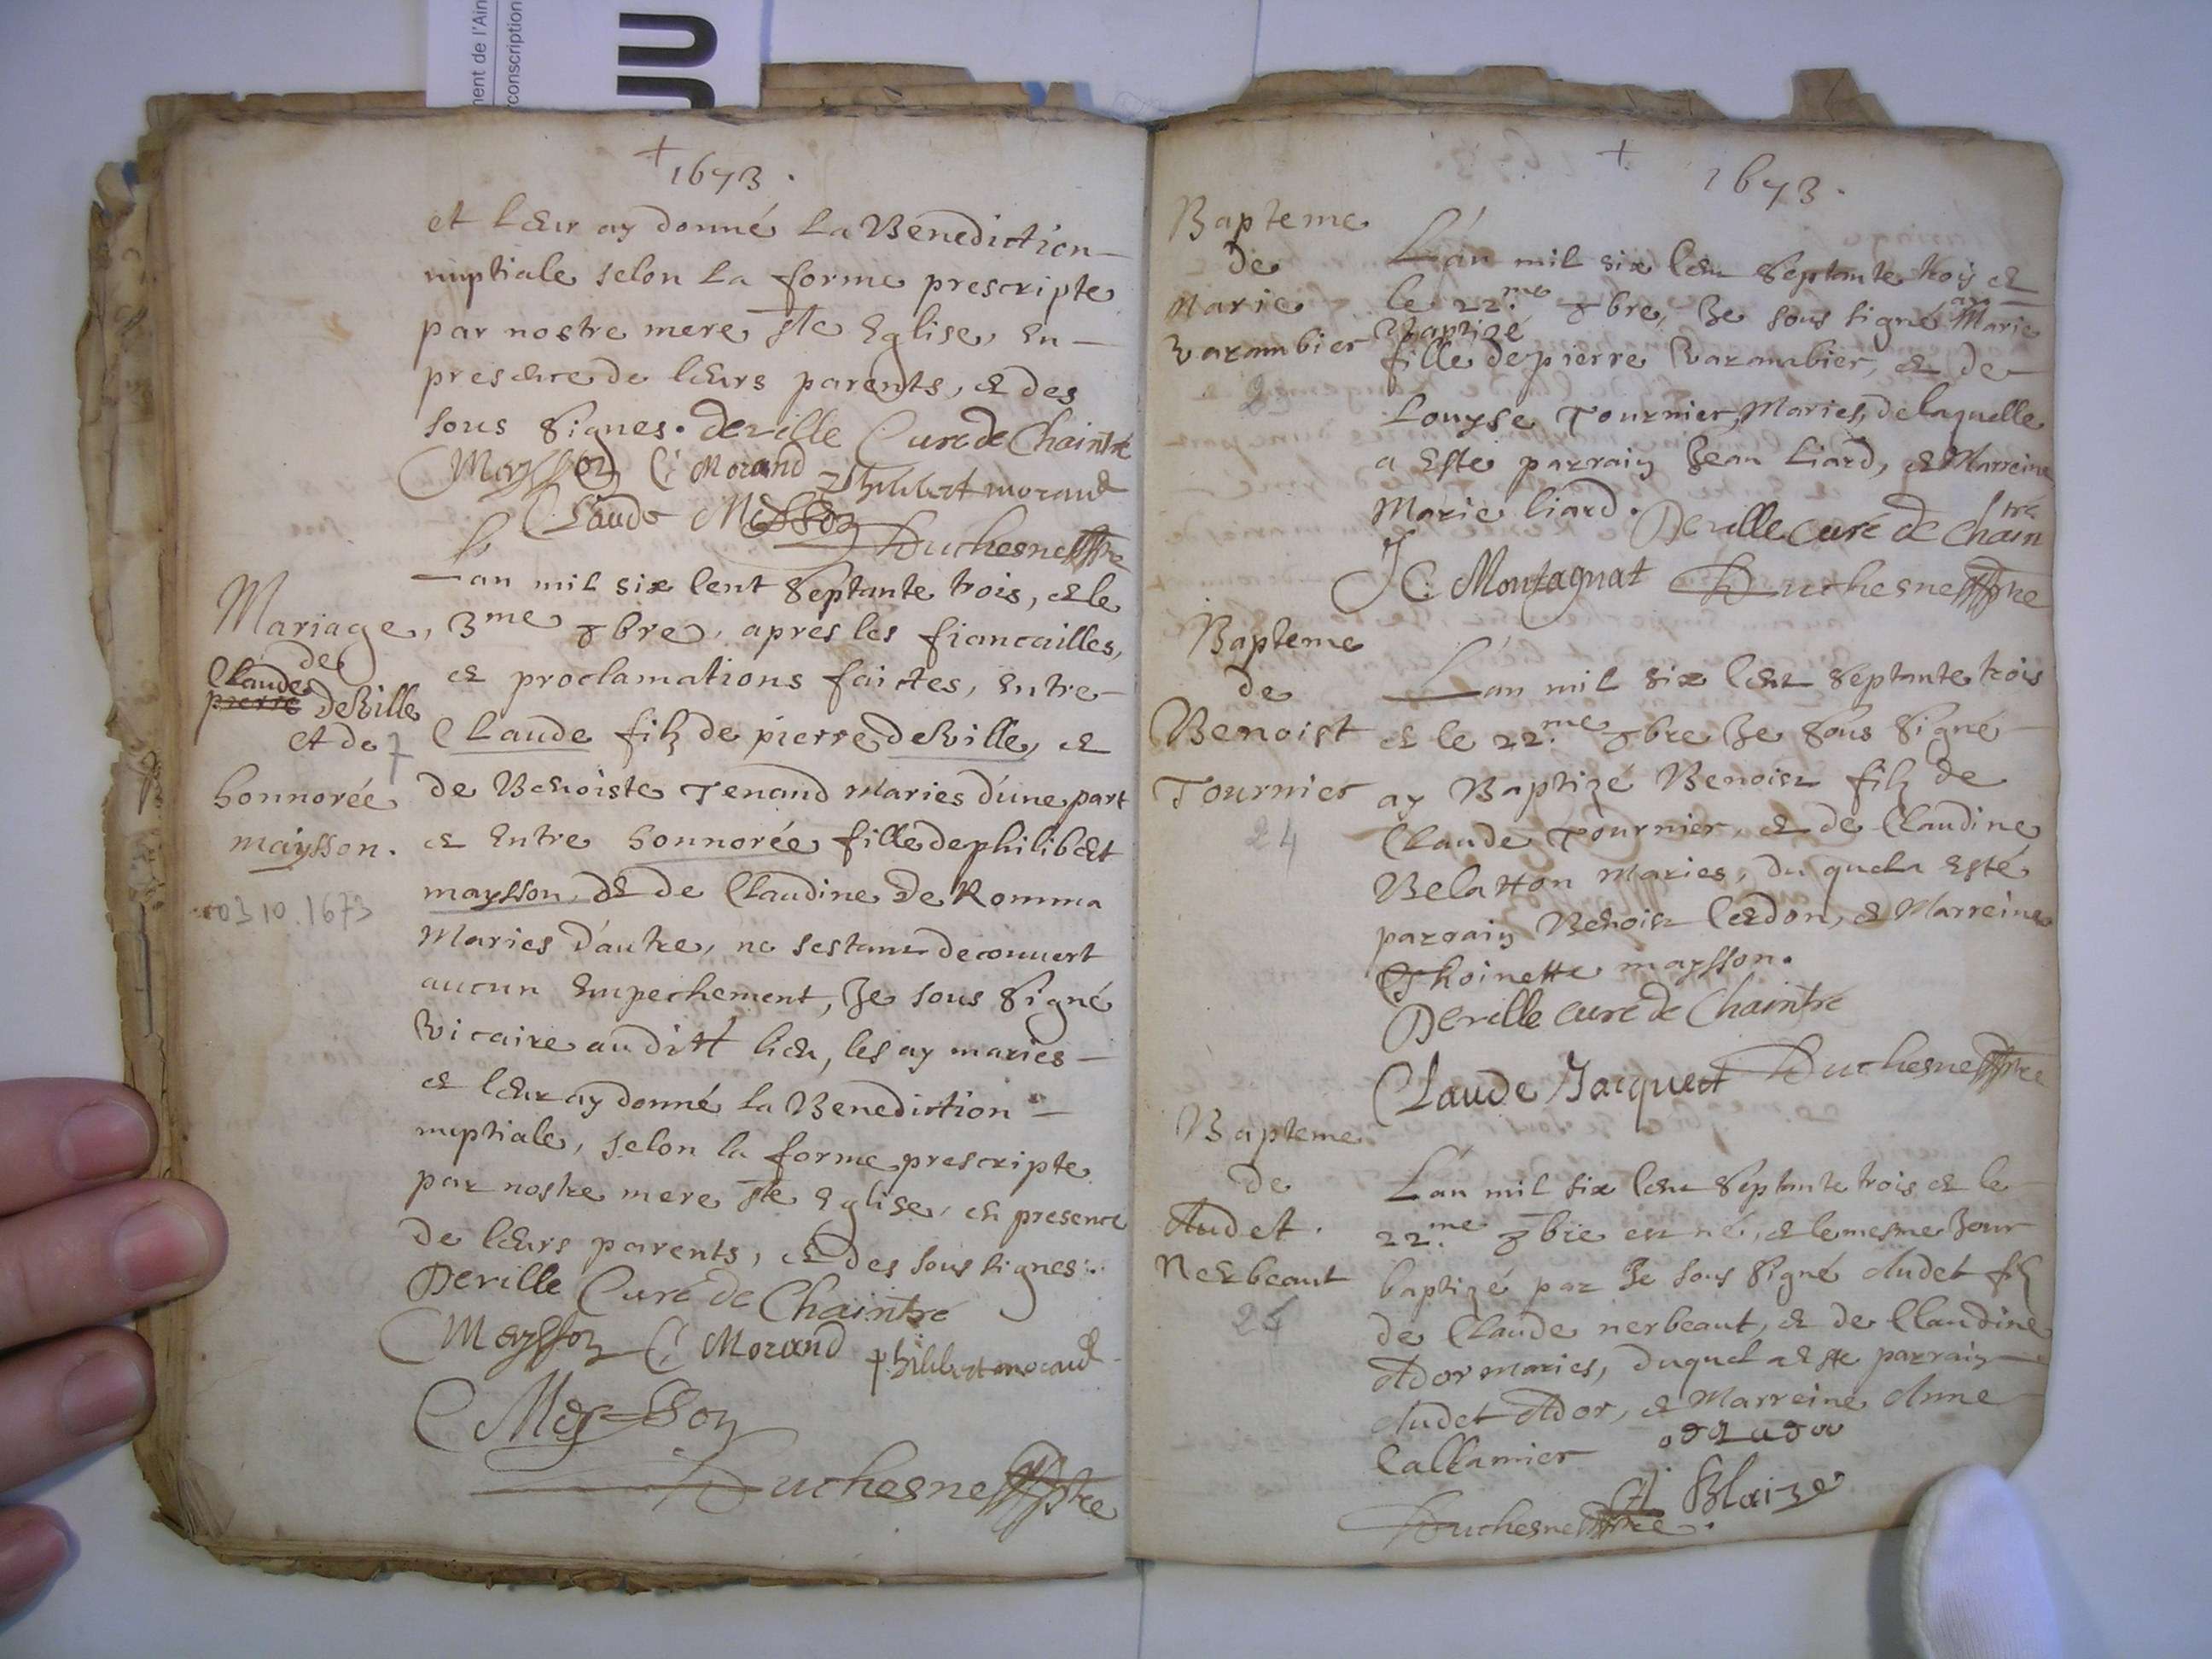 ment de l'Ain
conscription
+
1673.
et leur ay donné La Benediction
nuptiale selon La forme prescripte
par nostre mere ste Eglise, En
presence de leurs parents, et des
sous signes. deville Curé de Chaintré
Maysson C. Morand Philibert morand
Claude Messon Duchesne ptre
Mariage
de
Claude
pierre deville
et de
honnorée
maysson.
03 10.1673
L'an mil six cent septante trois, et le
3me 8bre, apres les fiancailles,
et proclamations faictes, Entre
Claude filz de pierre deville, et
de Benoiste Tenand maries d'une part
et Entre honnorée fille de philibert
maysson, et de Claudine de Romma
Maries d'autre, ne sestant decouuert
aucun Empechement, Je sous signé
vicaire auditt lieu, les ay maries
et leur ay donné la Benediction
nuptiale, selon la forme prescripte
par nostre mere ste Eglise, en presence
de leurs parents, et des sous signes.
Deville Curé de Chaintré
Maysson C. Morand philibert morand
Messon
Duchesne ptre
+
1673.
Bapteme
de
Marie
Varambier
L'an mil six cent septante trois et
le 22.me 8bre, Je sous signé ay
Baptizé Marie
fille de pierre Varambier, et de
Louyse Tournier, Maries, de laquelle
a esté parrain Jean Liard, et Marreine
Marie liard. Deville curé de Chaintré
J C. Montagnat Duchesne ptre
Bapteme
de
Benoist
Tournier
24
L'an mil six cent septante trois
et le 22.me 8bre Je sous signé
ay Baptizé Benoist filz de
Claude Tournier, et de Claudine
Belatton maries, du quel a Esté
parrain Benoist Cerdon, et Marreine
Thoinette maysson.
Deville curé de Chaintré
Claude Jacquet Duchesne ptre
Bapteme
de
Audet.
Nerbeaut
25
L'an mil six cent septante trois et le
22.me 8bre est né, et le mesme Jour
baptizé par Je sous signé Audet filz
de Claude nerbeaut, et de Claudine
Ador maries, duquel a esté parrain
Audet Ador, et Marreine Anne
Callamier
Blaize
Duchesne ptre.